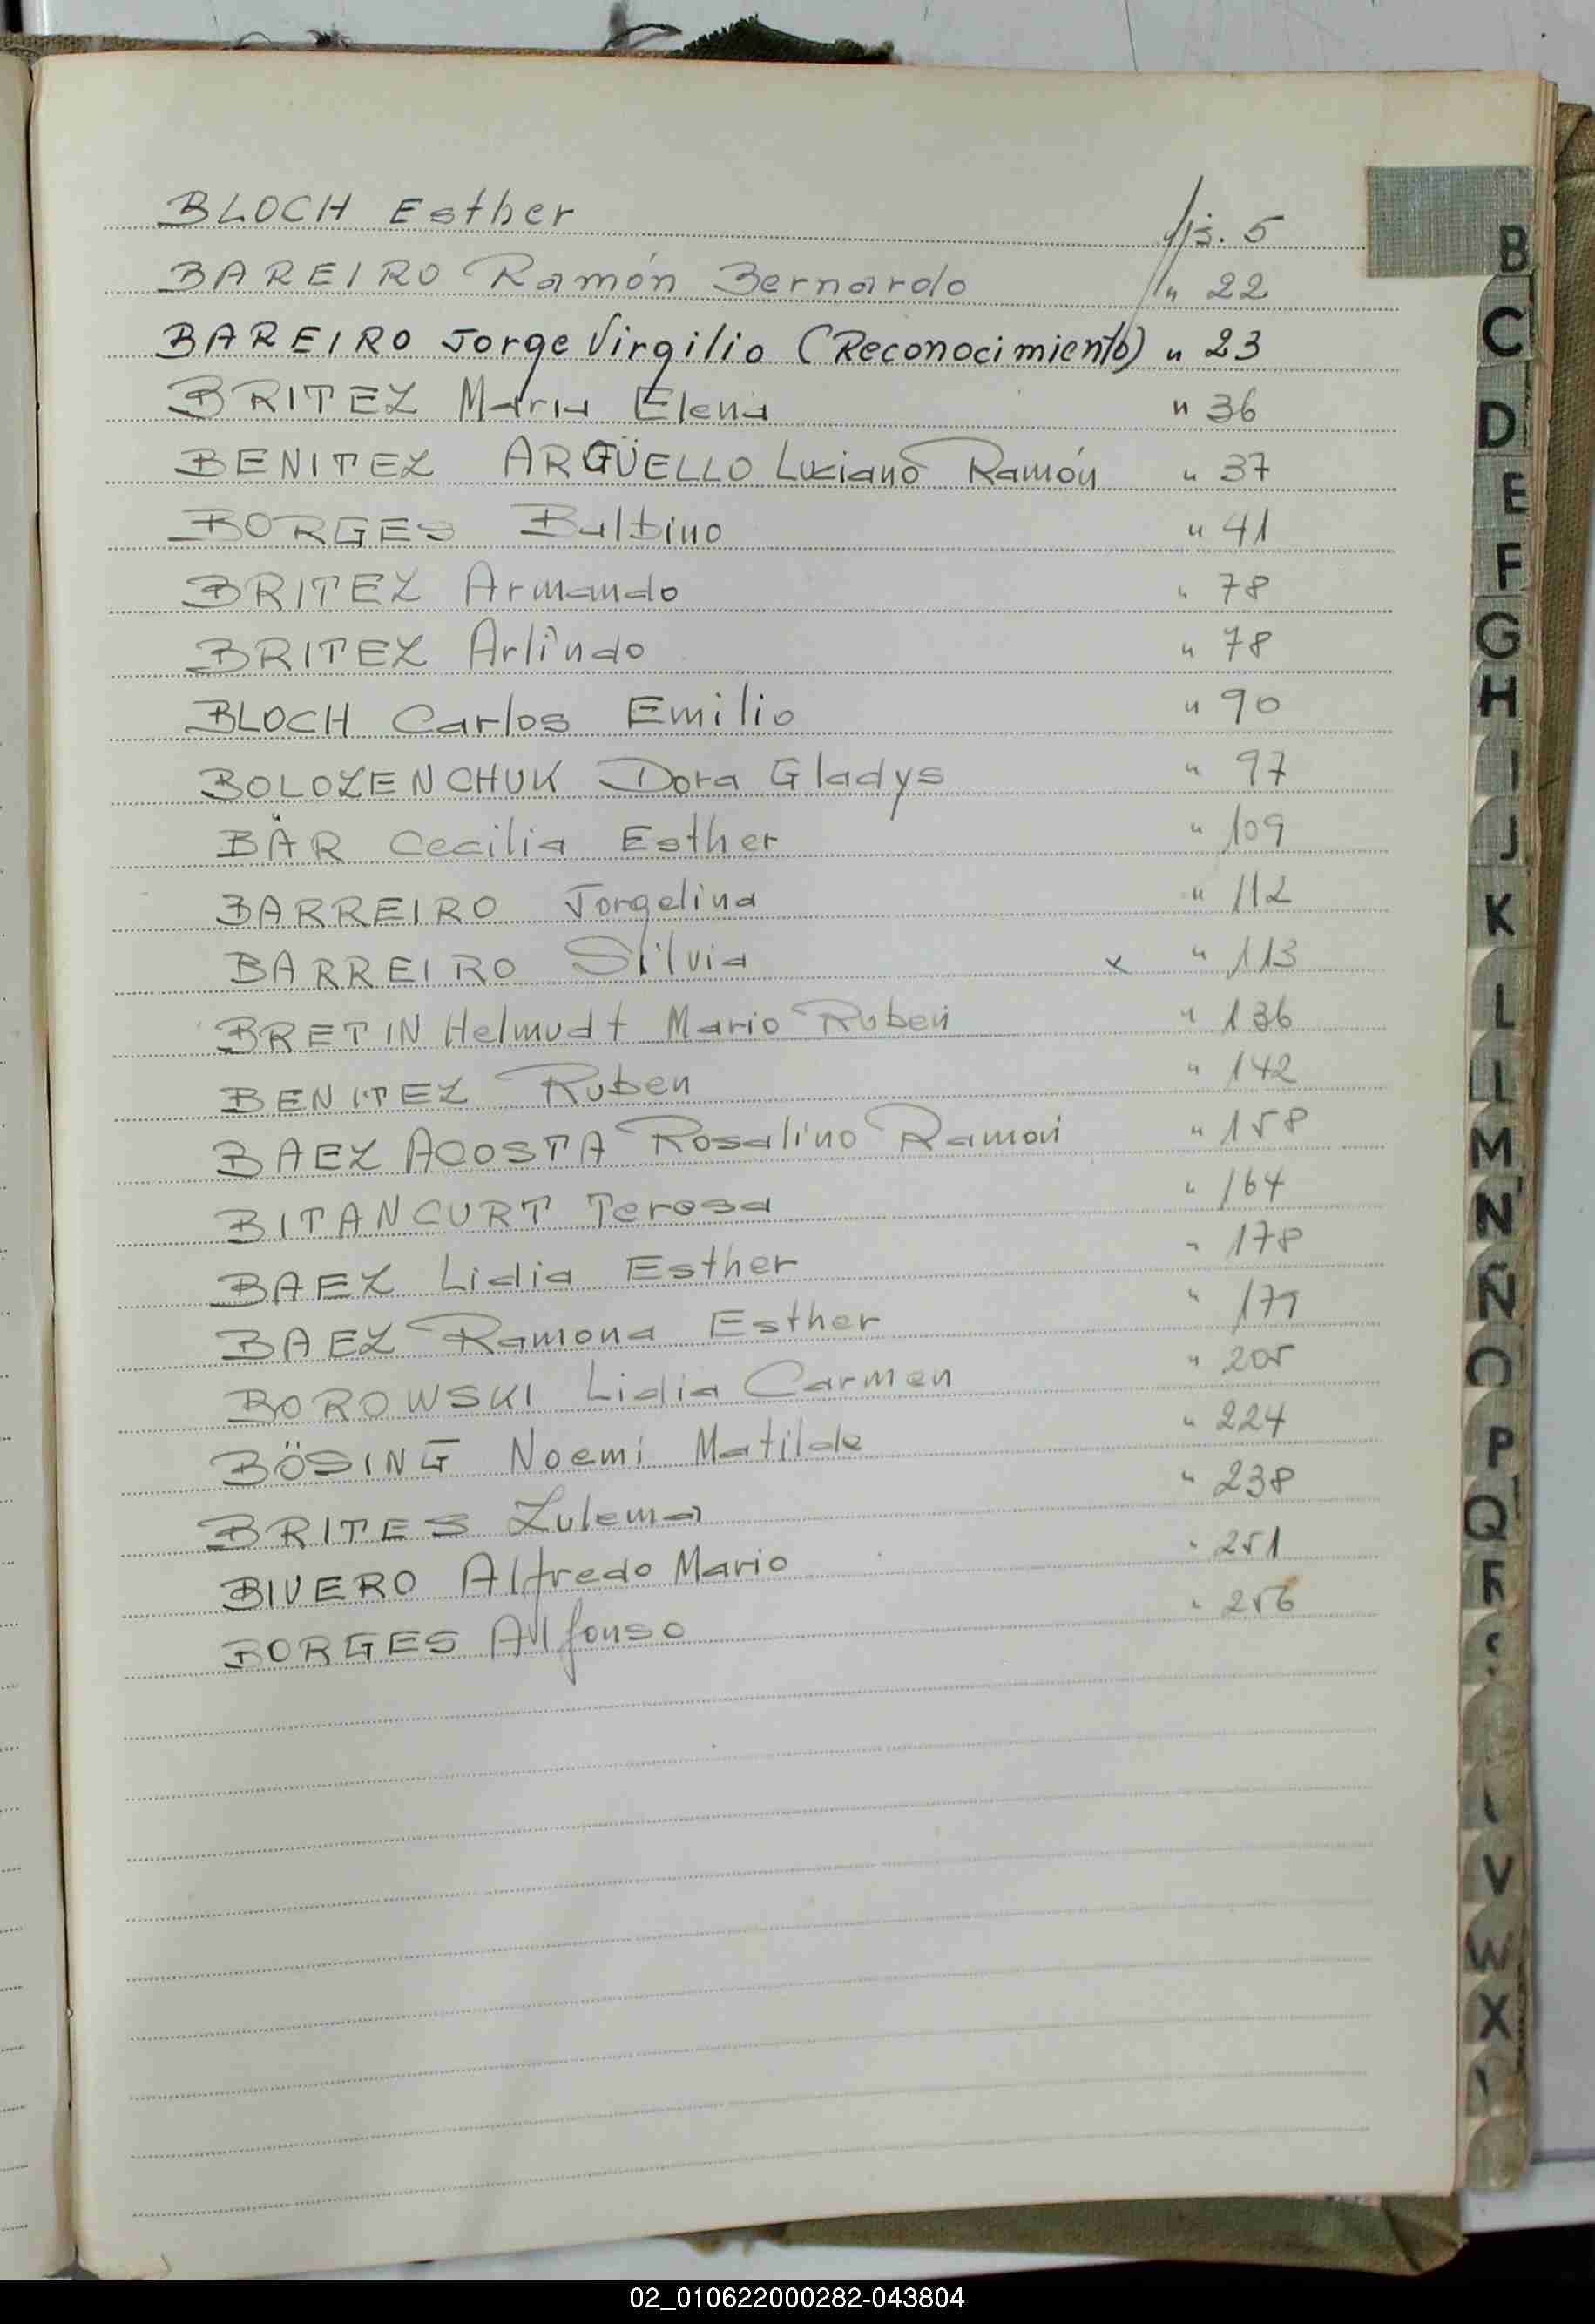 BLOCH Esther fjs. 5
BAREIRO Ramón Bernardo " 22
BAREIRO Jorge Virgilio (Reconocimiento) " 23
BRITEZ Maria Elena " 36
BENITEZ ARGÜELLO Luciano Ramón " 37
BORGES Balbino " 41
BRITEZ Armando " 78
BRITEZ Arlindo " 78
BLOCH Carlos Emilio " 90
BOLOZENCHUK Dora Gladys " 97
BÄR Cecilia Esther " 109
BARREIRO Jorgelina " 112
BARREIRO Silvia x " 113
BRETIN Helmudt Mario Ruben " 136
BENITEZ Ruben " 142
BAEZ ACOSTA Rosalino Ramon " 158
BITANCURT Teresa " 164
BAEZ Lidia Esther " 178
BAEZ Ramona Esther " 179
BOROWSKI Lidia Carmen " 205
BÖSING Noemi Matilde " 224
BRITES Zulema " 238
BIVERO Alfredo Mario " 251
BORGES Alfonso " 256
B
C
D
E
F
G
H
I
J
K
L
M
N
Ñ
O
P
Q
R
V
W
X
02_010622000282-043804